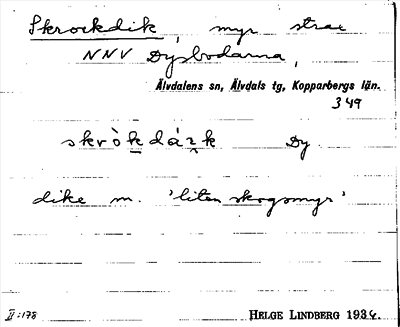 Skrockdik, myr strax
NNV Dysbodarna,
Älvdalens sn, Älvdals tg, Kopparbergs län.
349
skròkdáık Dy
dike m. 'liten skogsmyr'
II:178 HELGE LINDBERG 1936.